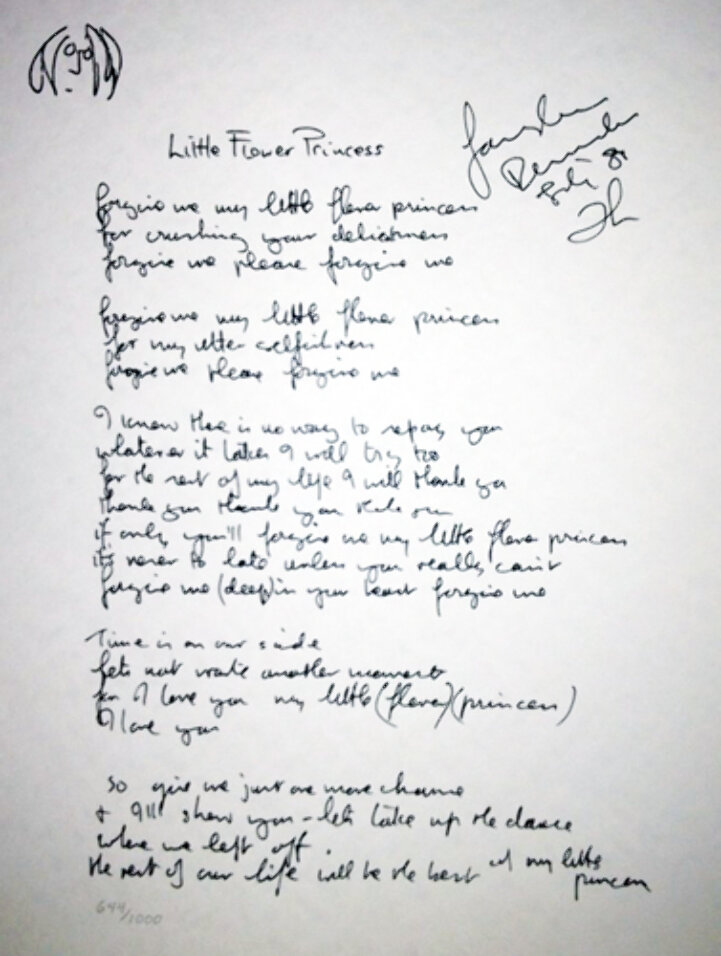 Little Flower Princess
forgive me my little flower princess
for crushing your delicatness
forgive me please forgive me
forgive me my little flower princess
for my utter selfishness
forgive me please forgive me
I know there is no way to repay you
whatever it takes I will try too
for the rest of my life I will thank you
thank you thank you thank you
if only you'll forgive me my little flower princess
it's never to late unless you really can't
forgive me (deep) in your heart forgive me
Time is on our side
lets not waste another moment
for I love you my little (flower) (princess)
I love you
so give me just one more chance
+ I'll show you - lets take up the dance
where we left off.
the rest of our life will be the best of my little
princess
644/1000